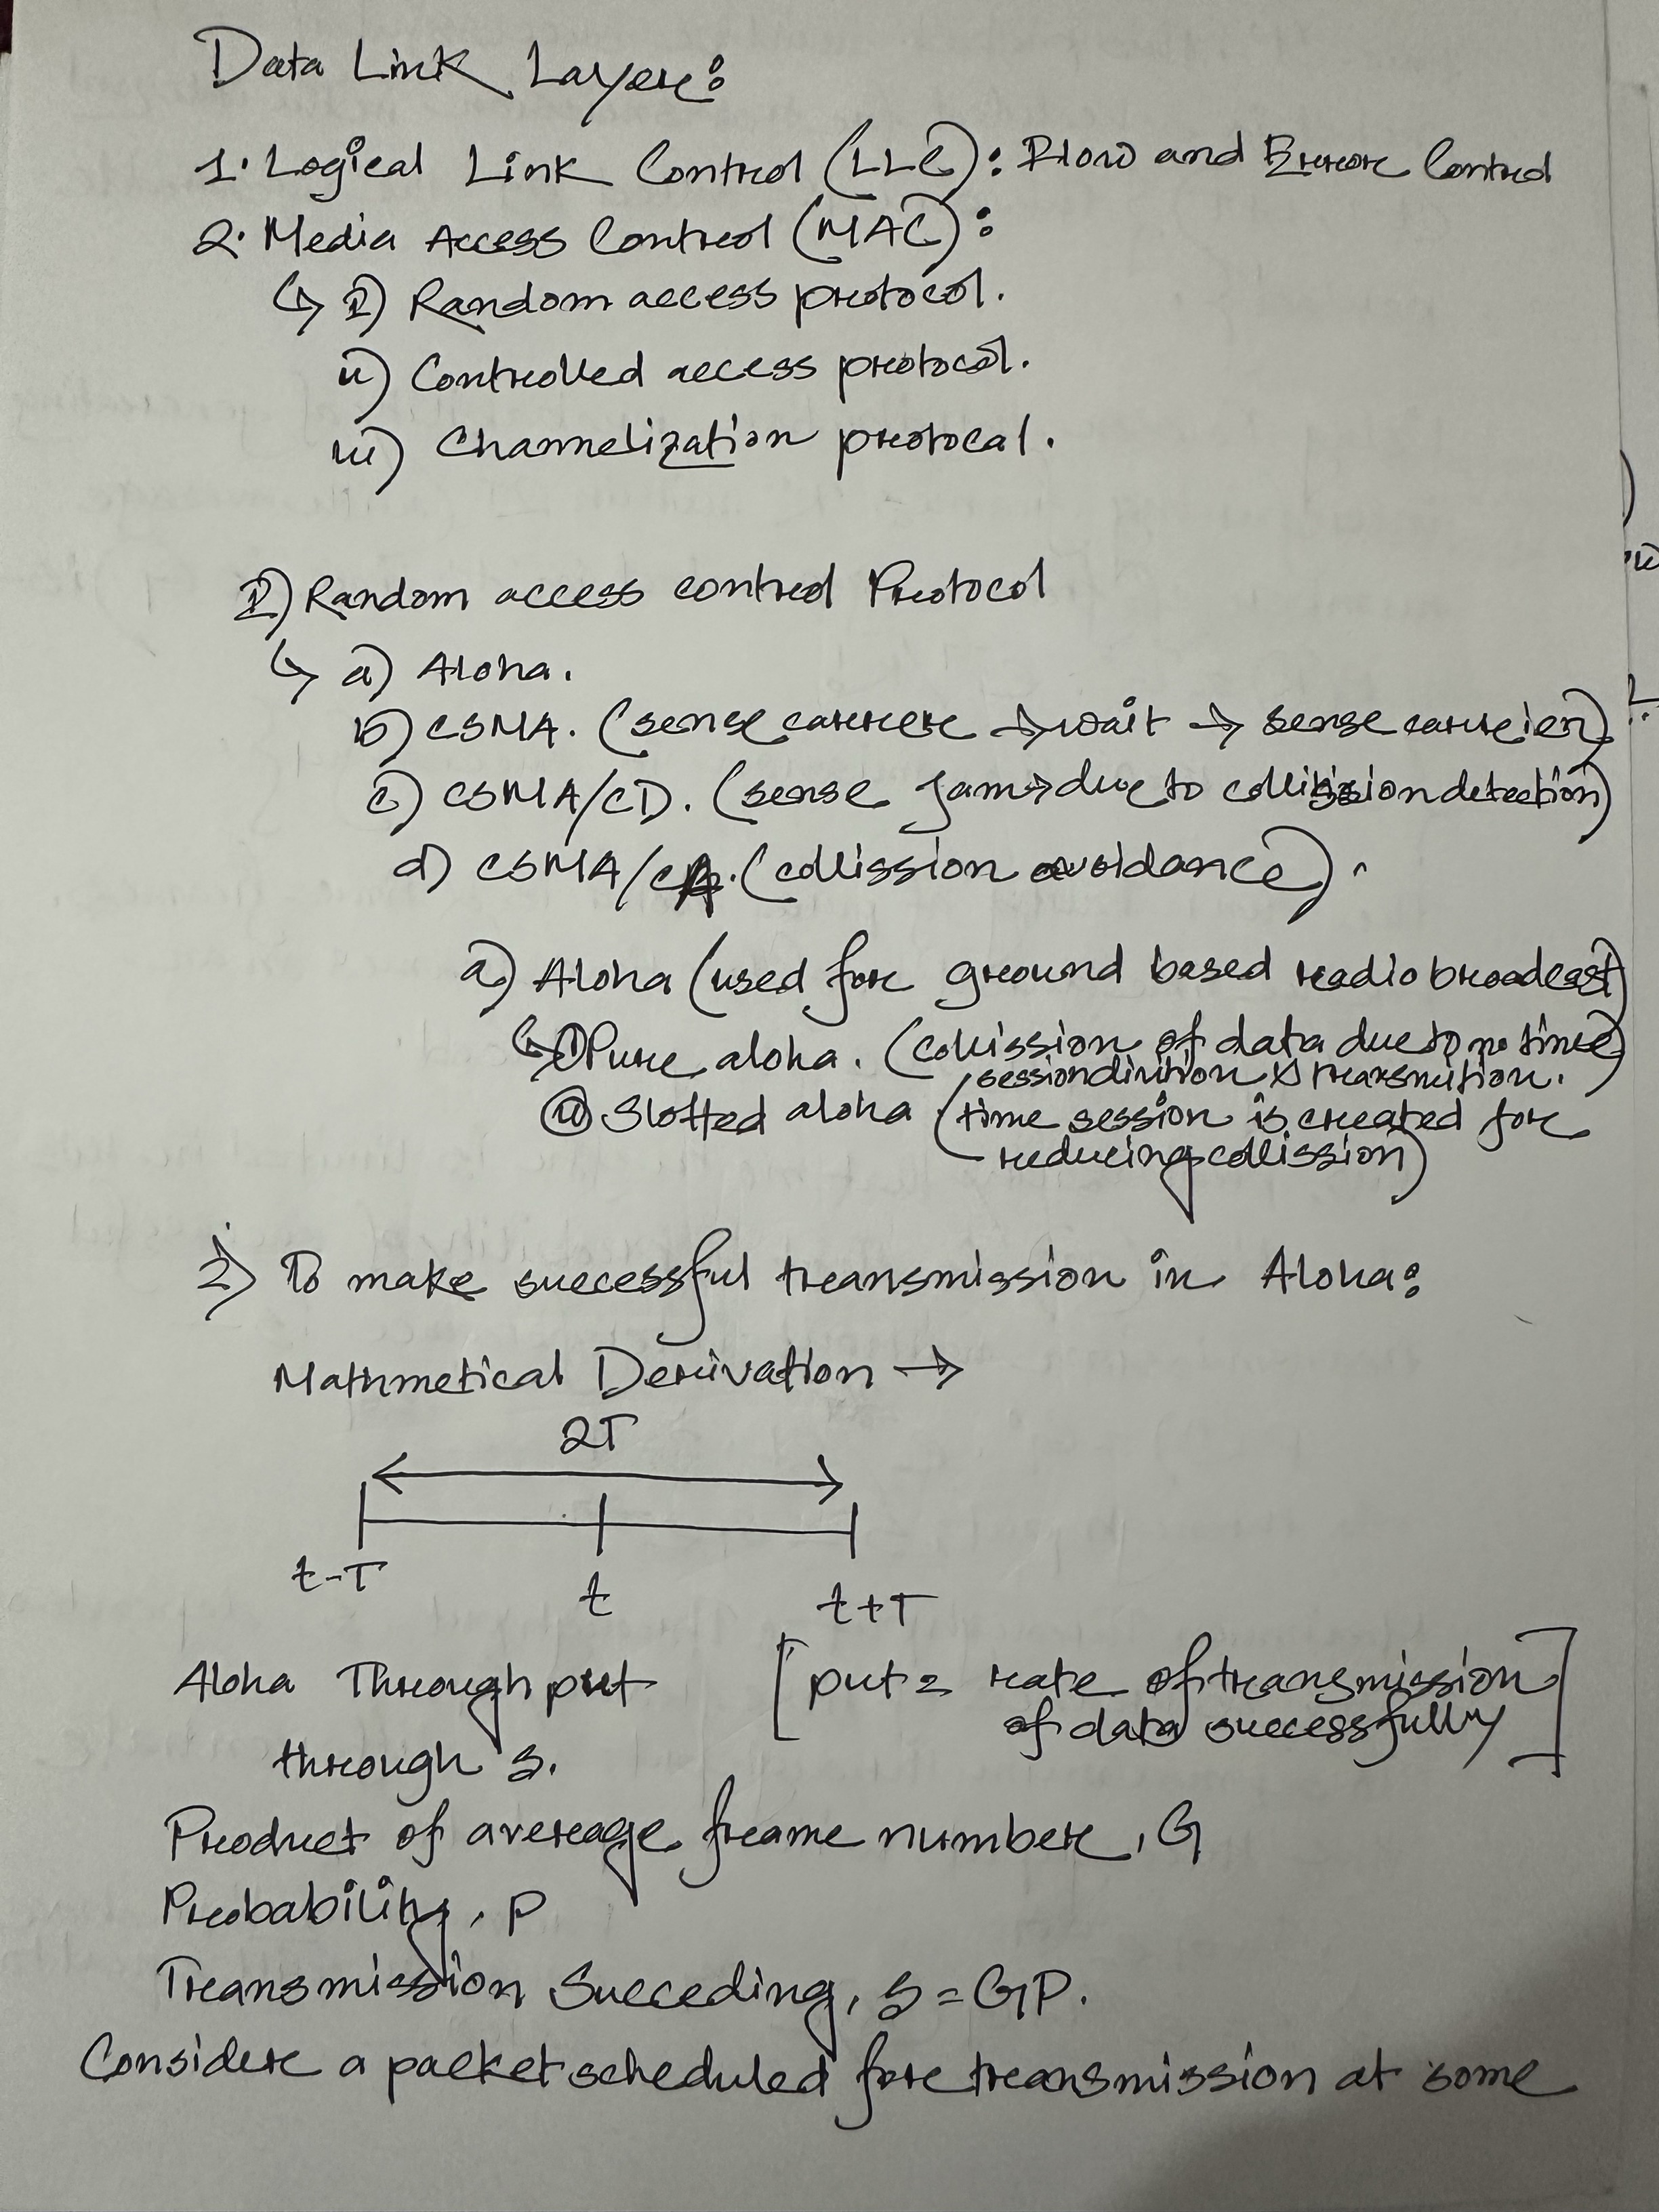 Data Link Layer:
1. Logical Link Control (LLC): Flow and Error Control
2. Media Access Control (MAC):
↳ I) Random access protocol.
ii) Controlled access protocol.
iii) Channelization protocal.
I) Random access control Protocol
↳ a) Aloha.
b) CSMA. (sense carrier → wait → sense carrier)
c) CSMA/CD. (sense Jam → due to collission detection)
d) CSMA/CA. (collission avoidance).
a) Aloha (used for ground based radio broadcast)
↳ i) Pure aloha. (collission of data due to no time
session divition & transmition.)
ii) Slotted aloha (time session is created for
reducing collission)
2) To make successful transmission in Aloha:
Mathmetical Derivation →
2T
t-T t t+T
Aloha Through put [put = rate of transmission
of data successfully]
through S.
Product of average frame number, G
Probability, P
Transmission Succeding, S = GP.
Consider a packet scheduled for transmission at some